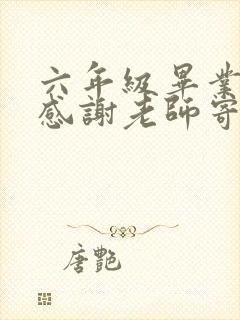 六年級畢業
感謝老師寄
唐艷